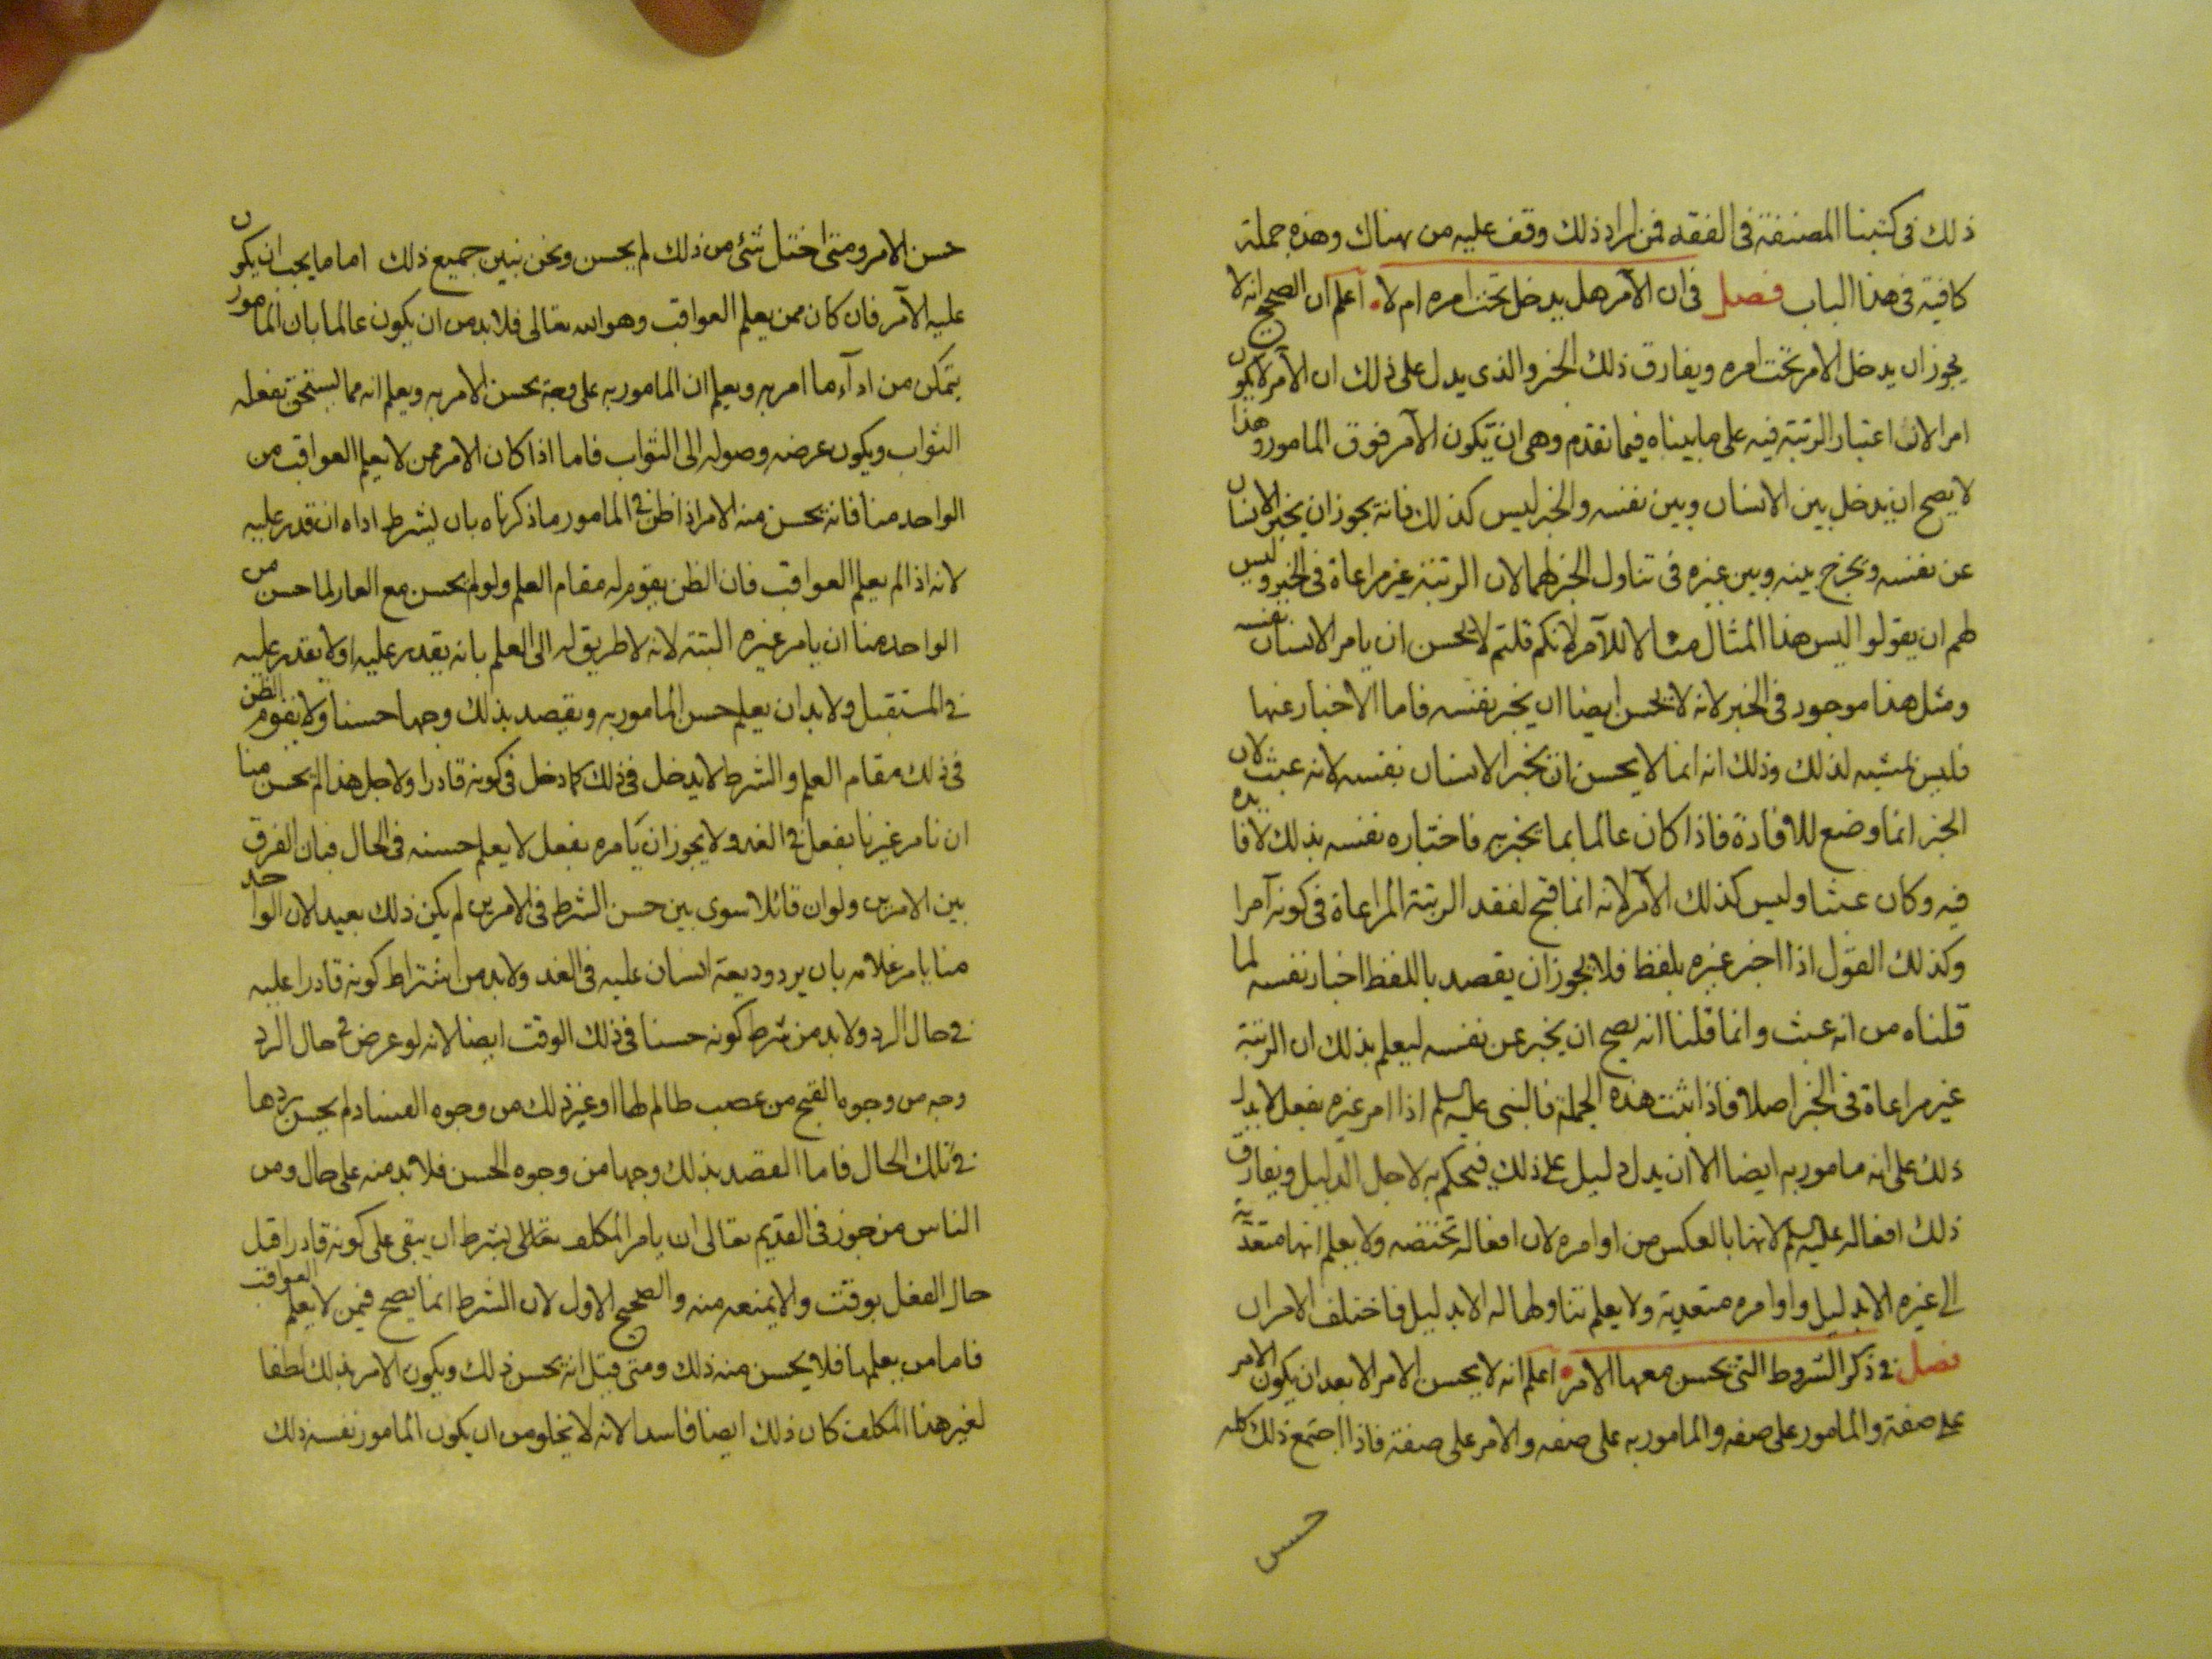 ذلك فى كتبنا المصنفة فى الفقه فمن اراد ذلك وقف عليه من هناك وهذه جملة
كافية فى هذا الباب فصل فى ان الآمر هل يدخل تحت امره ام لا اعلم ان الصحيح انه لا
يجوز ان يدخل الامر تحت امره ويفارق ذلك الخبر والذى يدل على ذلك ان الآمر لا يكون
امرا لان اعتبار الرتبة فيه على ما بيناه فيما تقدم وهى ان تكون الآمر فوق المامور وهذا
لا يصح ان يدخل بين الانسان وبين نفسه والخبر ليس كذلك فانه يجوز ان يخبر الانسان
عن نفسه ويخرج بينه وبين غيره فى تناول الخبر لهما لان الرتبة غير مراعاة فى الخبر وليس
لهم ان يقولوا ليس هذا المثال مثالا للآمر لانكم قلتم لا يحسن ان يامر الانسان نفسه
ومثل هذا موجود فى الخبر لانه لا يحسن ايضا ان يخبر نفسه فاما الاخبار عنها
فليس بمشبه لذلك وذلك انه انما لا يحسن ان يخبر الانسان نفسه لانه عبث لان
الخبر انما وضع للافادة فاذا كان عالما بما يخبر به فاختباره نفسه بذلك لا فايده
فيه وكان عبثا وليس كذلك الآمر لانه انما قبح لفقد الرتبة المراعاة فى كونه آمرا
وكذلك القول اذا اخبر غيره بلفظ فلا يجوز ان يقصد باللفظ اخبار نفسه لما
قلناه من انه عبث وانما قلنا انه يصح ان يخبر عن نفسه ليعلم بذلك ان الرتبة
غير مراعاة فى الخبر اصلا فاذا ثبت هذه الجملة فالنبى عليه السلم اذا امر غيره بفعل لا يدل
ذلك على انه مامور به ايضا الا ان يدل دليل على ذلك فيحكم به لاجل الدليل ويفارق
ذلك افعاله عليه السلم لانها بالعكس من اوامره لان افعاله تختصه ولا يعلم انها متعدية
الى غيره الا بدليل واوامره متعدية ولا يعلم تناولها له الا بدليل فاختلف الامران
فصل فى ذكر الشروط التى يحسن معها الامر اعلم انه لا يحسن الامر الا بعد ان يكون الامر
على صفة والمامور على صفه والمامور به على صفه والامر على صفة فاذا اجتمع ذلك كله
حسن
حسن الامر ومتى اختل شئ من ذلك لم يحسن ونحن نبين جميع ذلك اما ما يجب ان يكون
عليه الآمر فان كان ممن يعلم العواقب وهو الله تعالى فلا بد من ان يكون عالما بان المامور
يتمكن من اداء ما امر به ويعلم ان المامور به على وجه يحسن الامر به ويعلم انه مما يستحق بفعله
الثواب ويكون غرضه وصوله الى الثواب فاما اذا كان الامر ممن لا يعلم العواقب من
الواحد منا فانه يحسن منه الامر اذا ظن فى المامور ما ذكرناه بان يشرط اداه ان قدر عليه
لانه اذا لم يعلم العواقب فان الظن يقوم له مقام العلم ولو لم يحسن مع العار لما حسن من
الواحد منا ان يامر غيره البتة لانه لا طريق له الى العلم بانه يقدر عليه او لا يقدر عليه
فى المستقبل ولا بد ان يعلم حسن المامور به ويقصد بذلك وجها حسنا ولا يقوم الظن
فى ذلك مقام العلم والشرط لا يدخل فى ذلك كما دخل فى كونه قادرا ولاجل هذا لم يحسن منا
ان نامر غيرنا بفعل فى الغد ولا يجوز ان يامره بفعل لا يعلم حسنه فى الحال فبان الفرق
بين الامرين ولو ان قائلا سوى بين حسن الشرط فى الامرين لم يكن ذلك بعيدا لان الواحد
منا يامر غلامه بان يرد وديعة انسان عليه فى الغد ولا بد من اشتراط كونه قادرا عليه
فى حال الرد ولا بد من شرط كونه حسنا فى ذلك الوقت ايضا لانه لو عرض فى حال الرد
وجه من وجوه القبح من غصب ظالم لها او غير ذلك من وجوه الفساد لم يحسن ردها
فى تلك الحال فاما القصد بذلك وجها من وجوه الحسن فلا بد منه على حال ومن
الناس من جوز فى القديم تعالى ان يامر المكلف تعالى بشرط ان يبقى على كونه قادرا قبل
حال الفعل بوقت والا يمنعه منه والصحيح الاول لان الشرط انما يصح فيمن لا يعلم العواقب
فاما من يعلمها فلا يحسن منه ذلك ومتى قيل انه يحسن ذلك ويكون الامر بذلك لطفا
لغير هذا المكلف كان ذلك ايضا فاسدا لانه لا يخلو من ان يكون المامور نفسه ذلك